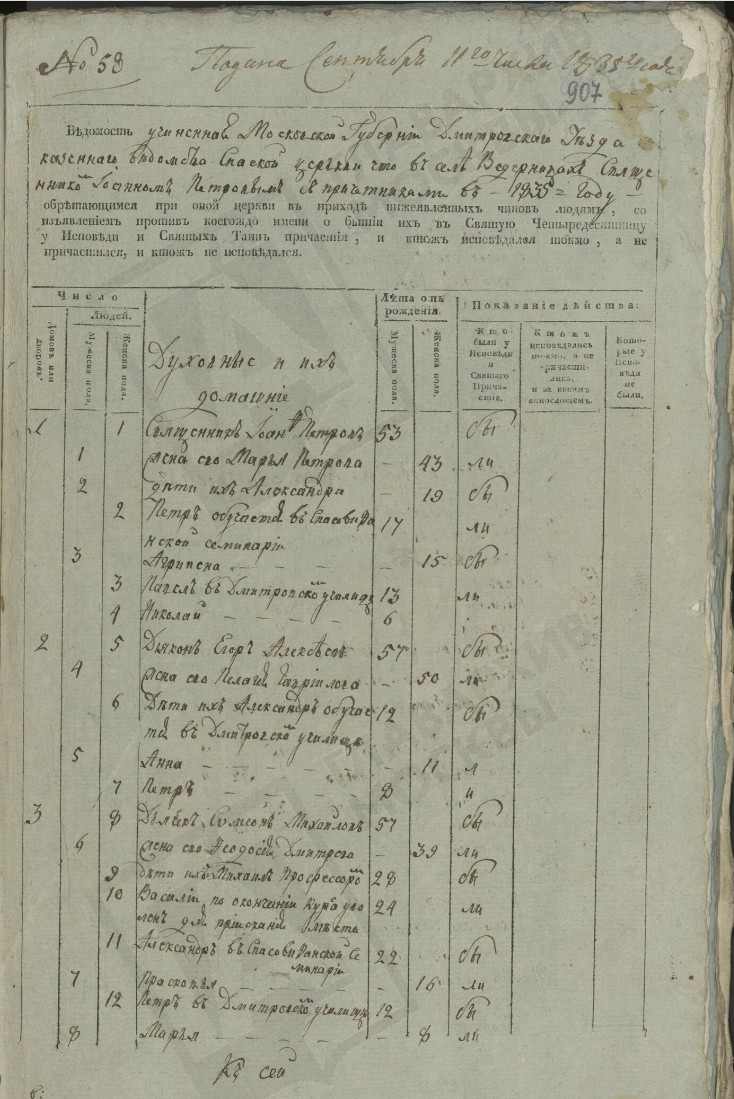 № 58 Подана Сентября 11го числа 1835 года
907
Вѣдомость учиненная Московской Губерніи Дмитровскаго Уѣзда
казеннаго вѣдомства Спаской церкви что въ селѣ Ведерницахъ Священ
никомъ Іоанномъ Петровымъ съ причетниками въ - 1835 = Году -
обрѣтающимся при оной церкви въ приходѣ нижеявленныхъ чиновъ людямъ, со
изъявленіемъ противъ коегождо имени о бытіи ихъ въ Святую Четыредесятницу
у Исповѣди и Святыхъ Таинъ причастія, и ктожъ исповѣдался токмо, а не
причастился, и ктожъ не исповѣдался.
Число
Людей.
Домовъ или дворовъ.
Мужеска пола.
Женска пола.
Духовные и ихъ
домашніе
Лѣта отъ рожденія.
Мужеска пола.
Женска пола.
Показаніе дѣйства:
Кто были у Исповѣди и Святаго Причастія.
Ктожъ исповѣдались токмо, а не причастились, и за какимъ винословіемъ.
Которые у Исповѣди не были.
1 1 Священникъ Іоаннъ Петровъ 53 бы
1 жена его Марья Петрова - 43 ли
2 дѣти ихъ Александра - 19 бы
2 Петръ обучается въ Спасовифа 17 ли
нской семинаріи
3 Агрипена - - - - 15 бы
3 Павелъ въ Дмитровскомъ училищѣ 13 ли
4 Николай - - - - - 6
2 5 Дьяконъ Егоръ Алексѣевъ 57 бы
4 жена его Пелагея Гавріилова - 50 ли
6 Дѣти ихъ Александръ обучае 12 бы
тся въ Дмитровскомъ училищѣ
5 Анна - - - - - - 11 л
7 Петръ - - - - - 8 и
3 8 Дьячекъ Симеонъ Михайловъ 57 бы
6 жена его Ѳеодосія Дмитрева - 39 ли
9 дѣти ихъ Михаилъ Профессоромъ 28 бы
10 Василій по окончаніи Курса уво 24 ли
ленъ для пріисканія мѣста
11 Александръ въ Спасовифанской Се 22 бы
минаріи
7 Прасковья - - - - - 16 ли
12 Петръ въ Дмитровскомъ училищѣ 12 бы
8 Марья - - - - - - 8 ли
Къ сей